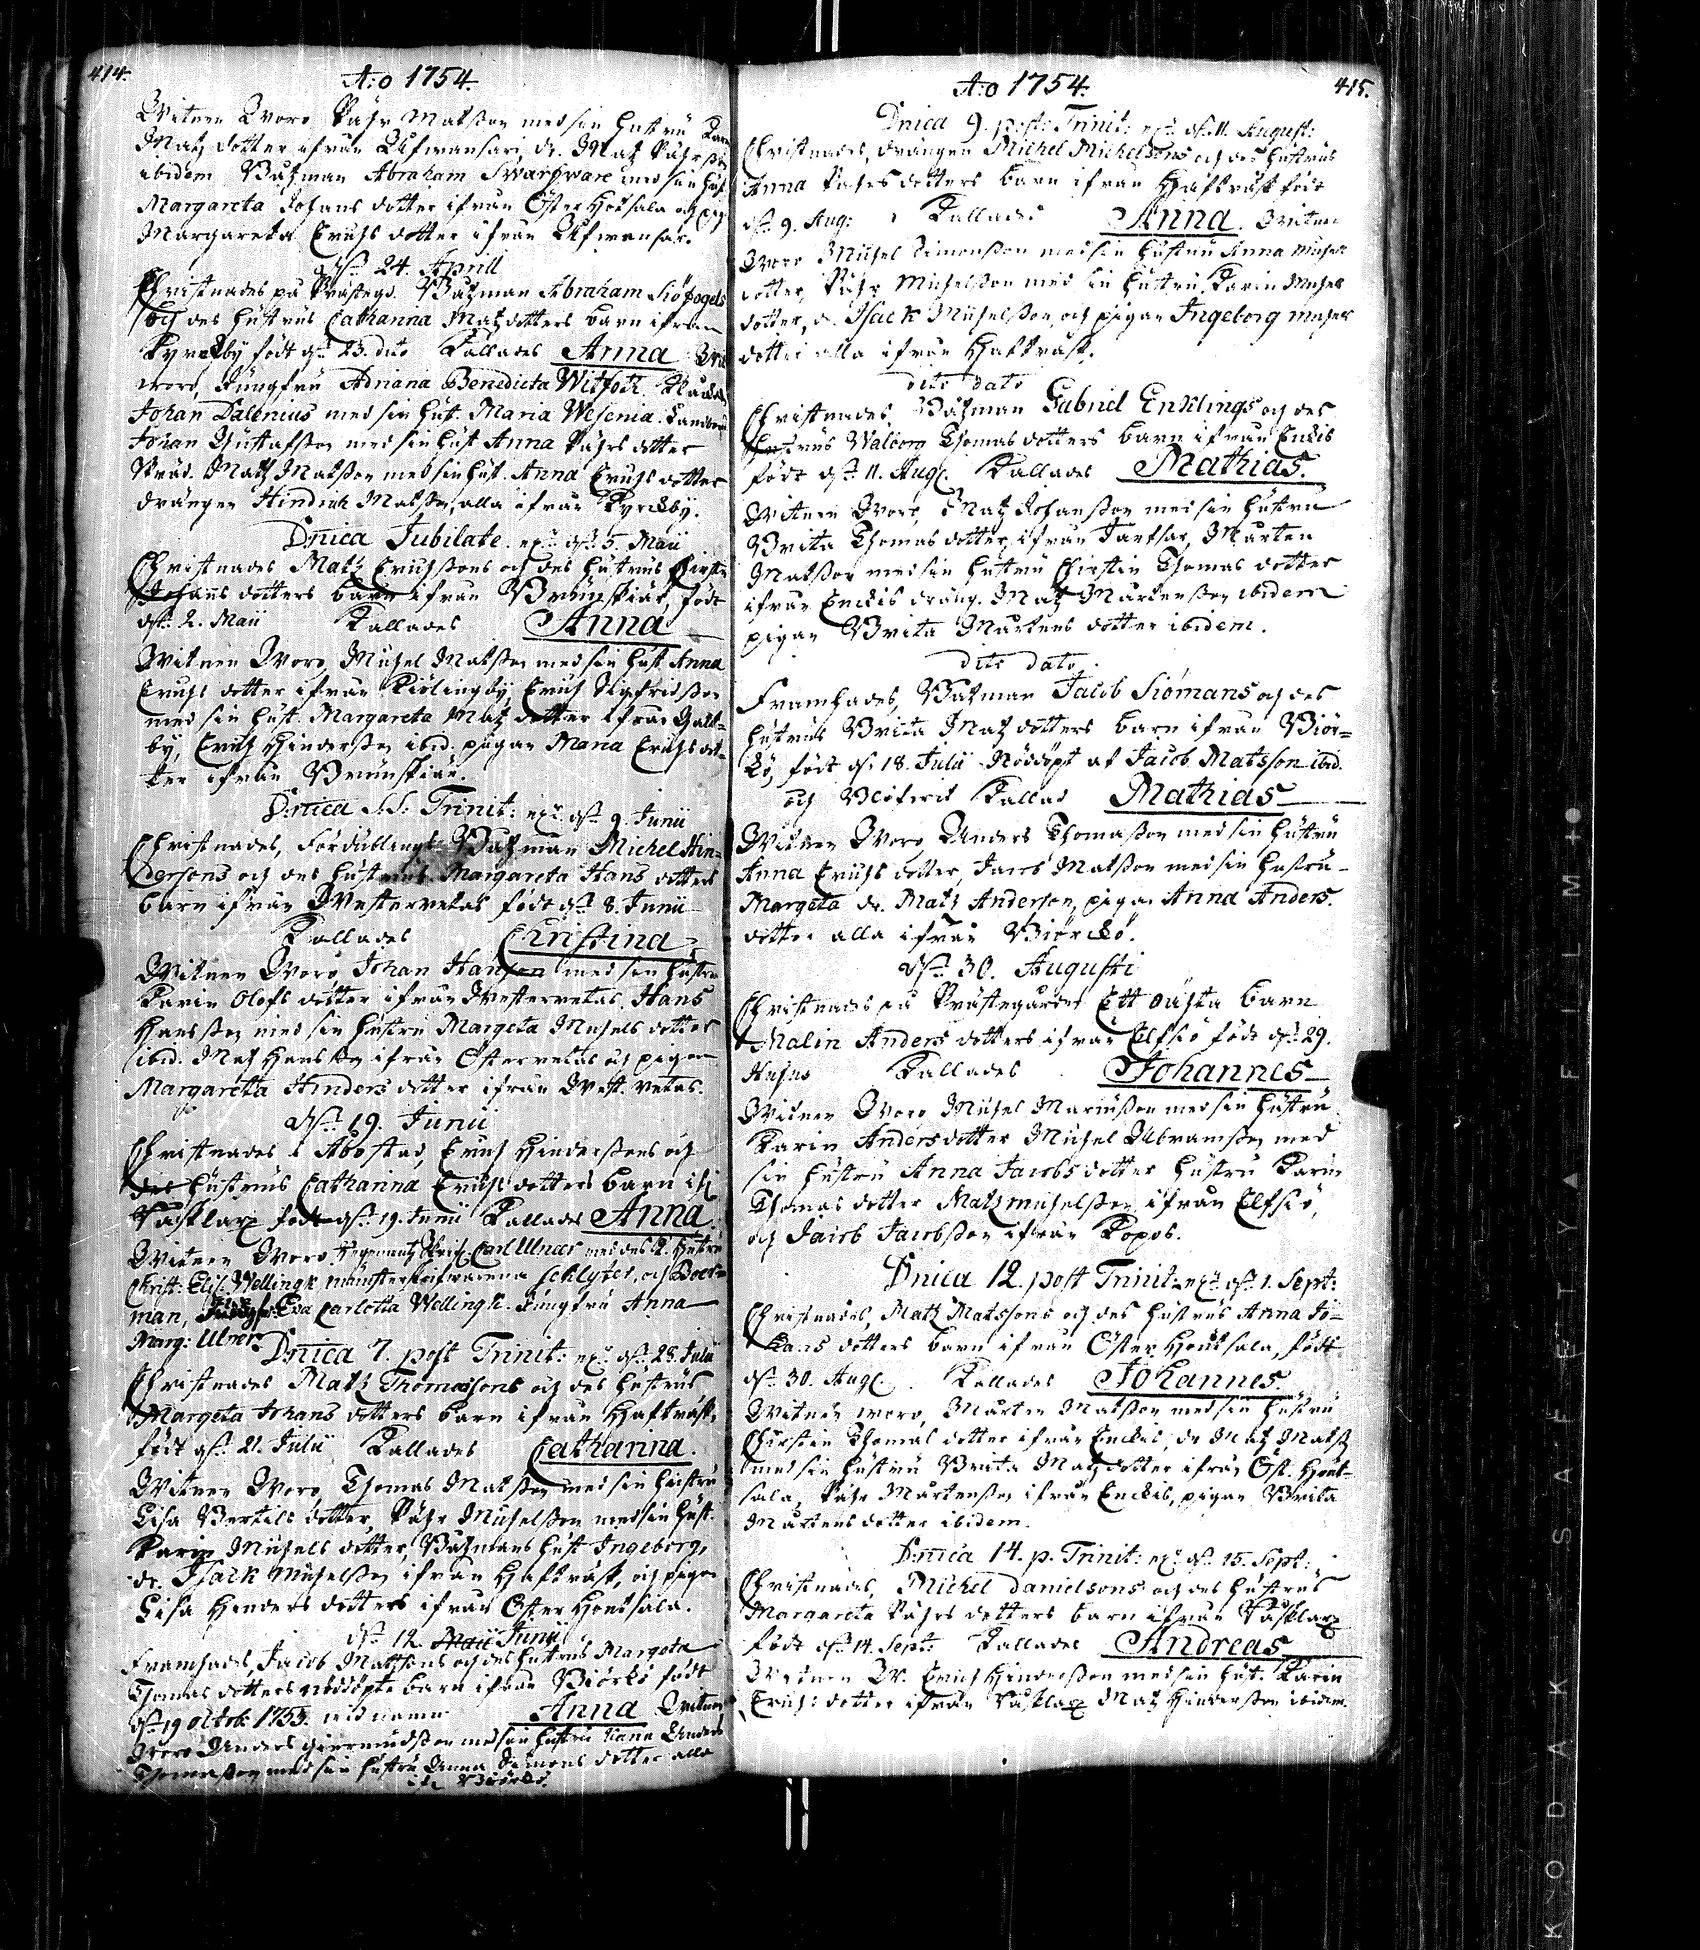 414.
A:o 1754.
Witnen Woro Påhr Matsson med sin hustru
Matz dotter ifrån dr. Matz Påhrsson
ibidem Båtzman Abraham Swartzware med sin hust.
Margareta Johans dotter ifrån Öster Hoŭtsala och
Margareta Erichs dotter ifrån
d. 24. Aprill
Christnades på Prästegd. Båtzman Abraham Siöfogels
och des hustrus Catharina Matzdotters barn ifrån
Kyrckby född d. 23. dito Kallades Anna
woro, Jungfru Adriana Benedicta Witfoth
Johan Dalenius med sin hust. Maria Wesenia.
Johan Gustafsson med sin hust. Anna Påhrs dotter
Matz Matsson med sin hust. Anna Erichs dotter
drängen Hindrich Matsson, alla ifrån Kyrckby.
Dnica Jubilate d. 5. Maij
Christnades Matz Erichssons och des hustrus Chirstin
Johans dotters barn ifrån Brunskiär, född
d. 2. Maii Kallades Anna
Witnen Woro, Michel Matsson med sin hust. Anna
Erichs dotter ifrån Kiölingby, Erich Sigfridsson
med sin hust. Margareta Matz dotter ifrån Galt-
by, Erich Hindersson ibid. pigan Maria Erichs dot-
ter ifrån Brunskiär.
Dnica S.S. Trinit: d. 9. Junii
Christnades, Fördublings Båtzman Michel Hin-
dersons och des hustrus Margareta Hans dotters
barn ifrån Westerretas född d. 8. Junii
Kallades Christina
Witnen Woro Johan Hanson med sin hustru
Karin Olofs dotter ifrån Westerretas, Hans
Hansson med sin hustru Margeta Michels dotter
ibid. Matz Hansson ifrån Österretas och pigan
Margaretta Hinders dotter ifrån West. retas.
d. 19. Junii
Christnades i Åbo stad, Erich Hinderssons och
des hustrus Catharina Erichs dotters barn if.
född d. 19. Junii Kallades Anna.
Witnen Woro Carl Ulner med des k. hustru
Christ: Elis: Wellingk, Schlyter, och Boek-
man, Eva Carlotta Wellingk. Jungfru Anna
Marg: Ulner.
Dnica 7. post Trinit: d. 28. Julii
Christnades Matz Thomassons och des hustrus
Margeta Johans dotters barn ifrån Hafträsk,
född d. 21. Julii Kallades Catharina.
Witnen Woro, Thomas Matsson med sin hustru
Lisa Bertils dotter, Påhr Michelsson med sin hust.
Karin Michels dotter, Båtzmans hust. Ingeborg,
dr. Isack Michelsson ifrån Hafträsk, och pigan
Lisa Hinders dotters ifrån Öster Hoŭtsala.
d. 12. Junii
Framhades, Jacob Matssons och des hustrus Margeta
Thomas dotters nöddöpte barn ifrån Biörkö född
d. 19 octob. 1753. wid namn Anna Witnen
woro Anders med sin hustru Anders
Thomasson med sin hustru Anna Simons dotter alla
ifr. Biörkö.
A:o 1754.
415.
Dnica 9. post: Trinit: d. 11. August:
Christnades, drängen Michel Michelsons och des hustrus
Anna Påhrs dotters barn ifrån Hafträsk född
d. 9. Aug: Kallades Anna. Witnen
Woro Michel Simonsson med sin hustru Anna Michels
dotter, Påhr Michelsson med sin hustru Karin Michels
dotter, dr. Isack Michelsson, och pigan Ingeborg Michels
dotter alla ifrån Hafträsk.
dito dato
Christnades, Båtzman Gabriel Enklings och des
hustrus Walborg Thomas dotters barn ifrån Enckis
född d. 11. Aug. Kallades Mathias.
Witnen Woro, Matz Johansson med sin hustru
Brita Thomas dotter, ifrån Jarfsar, Mårten
Matsson med sin hustru Chirstin Thomas dotter
ifrån Enckis dräng. Matz Mårtensson ibidem
pigan Brita Mårtens dotter ibidem.
dito dato
Framhades, Båtzman Jacob Siömans och des
hustrus Brita Matz dotters barn ifrån Biör-
kö, född d. 18. Julii Nöddöpt af Jacob Matsson ibid.
och blefwit Kallad Mathias
Witnen Woro, Anders Thomasson med sin hustru
Anna Erichs dotter, Jacob Matsson med sin hustru
Margeta dr. Matz Anderson, pigan Anna Anders.
dotter alla ifrån Biörckö.
d. 30. Augusti
Christnades på Prästegården Ett oächta barn
Malin Anders dotters ifrån Elfsiö född d. 29.
Hujus Kallades Johannes
Witnen Woro Michel Marcusson med sin hustru
Karin Anders dotter Michel Abramsson med
sin hustru Anna Jacobs dotter hustru Karin
Thomas dotter Matz Michelsson ifrån Elfsiö,
och Jacob Jacobsson ifrån Kopos.
Dnica 12. post Trinit: d. 1. Sept:
Christnades, Matz Matssons och des hustrus Anna Jo-
hans dotters barn ifrån Öster Hoŭtsala, född
d. 30. Aug. Kallades Johannes.
Witnen woro, Mårten Matsson med sin hustru
Chirstin Thomas dotter ifrån Enckis, dr Matz Mats
med sin hustru Brita Matzdotter ifrån Öst. Hoŭt-
sala, Påhr Mårtensson ifrån Enckis, pigan Brita
Mårtens dotter ibidem.
Dnica 14. p. Trinit: d. 15. Sept:
Christnades, Michel Danielsons och des hustrus
Margareta Påhrs dotters barn ifrån
född d. 14. Sept: Kallades Andreas
Witnen W. Erich Hindersson med sin hust: Karin
Erichs: dotter ifrån Matz Hindersson ibidem.
KODAK SAFETY FILM